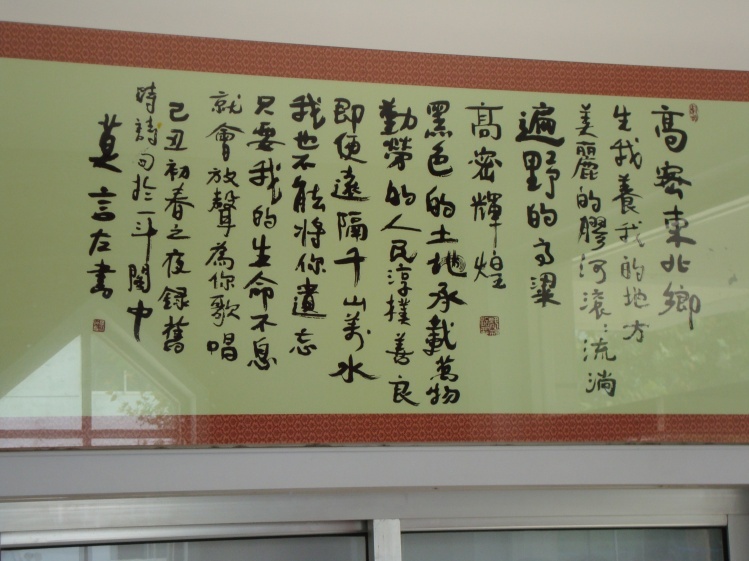 高密東北鄉
生我養我的地方
美麗的膠河滾：流淌
遍野的高粱
高密輝煌
黑色的土地承載萬物
勤勞的人民淳樸善良
即使遠隔千山萬水
我也不能將你遺忘
只要我的生命不息
就會放聲為你歌唱
己丑初春之夜録舊
時詩句於一斗閣中
莫言左書